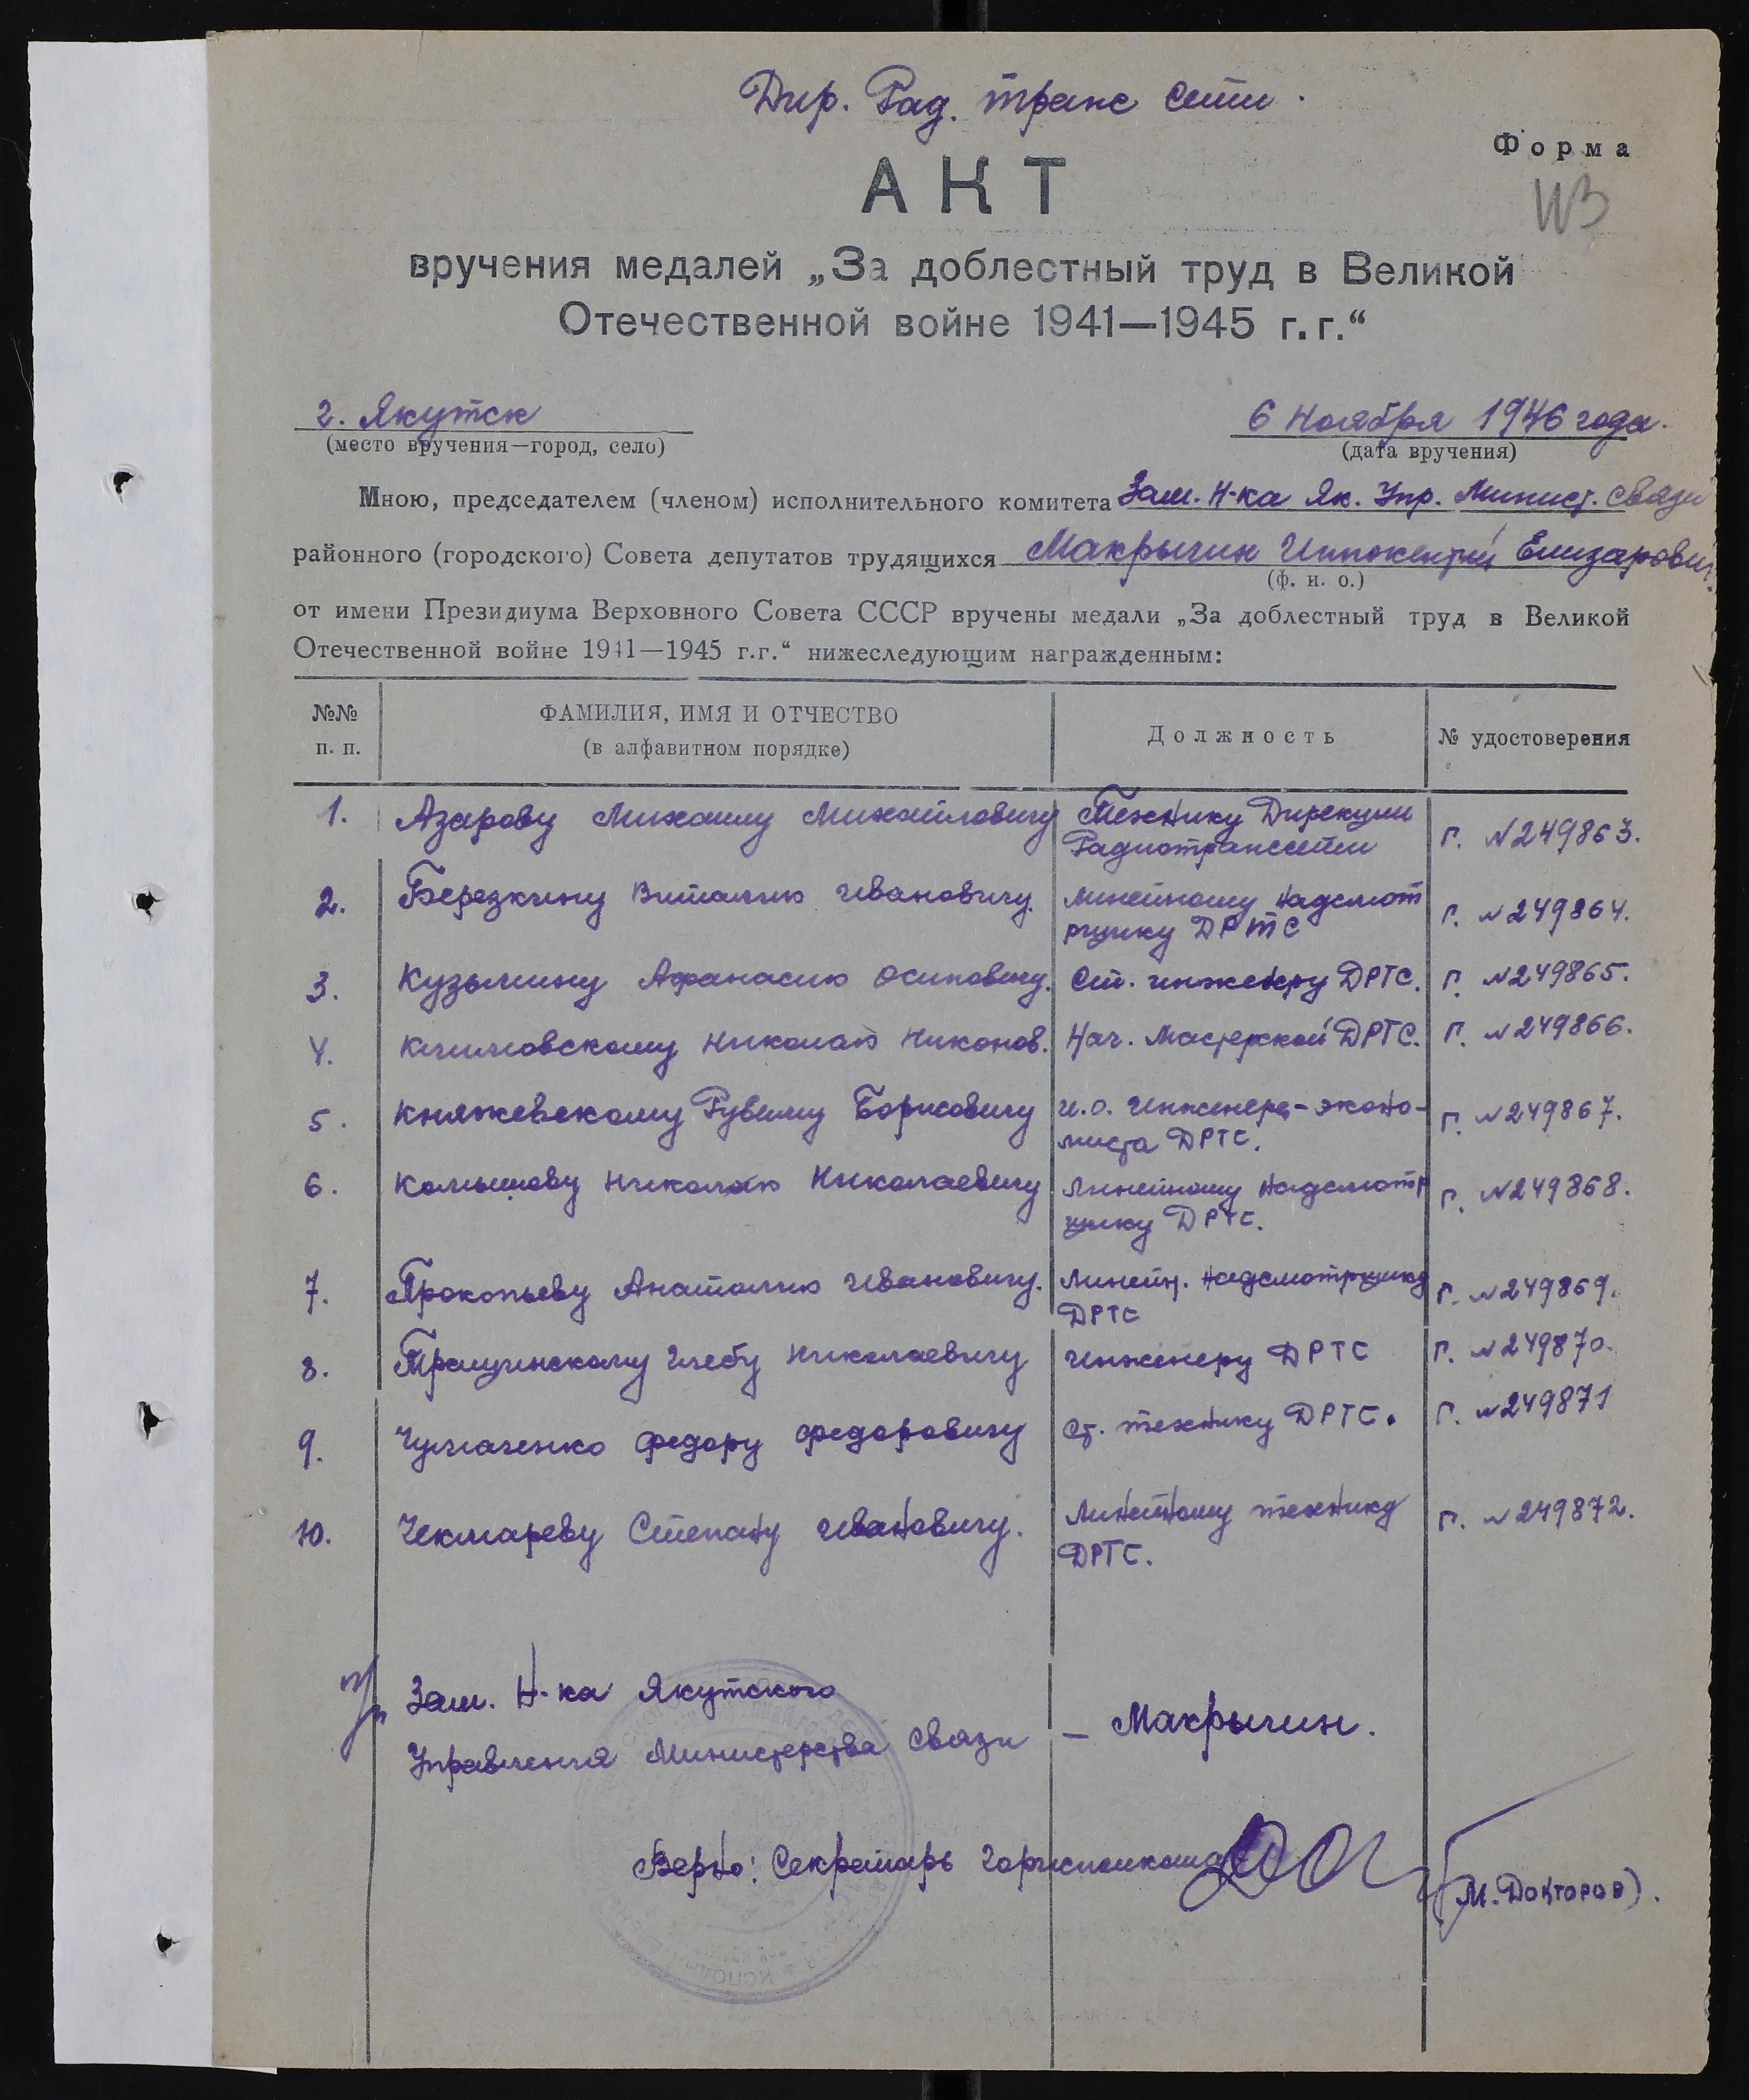 Дир. Рад. транс сети.
Форма
АКТ
вручения медалей „За доблестный труд в Великой
Отечественной войне 1941—1945 г.г.“
г. Якутск
6 Ноября 1946 года.
(место вручения—город, село)
(дата вручения)
Мною, председателем (членом) исполнительного комитета Зам. Н-ка Як. Упр. Минист. Связи
районного (городского) Совета депутатов трудящихся Макрыгин Иннокентий Елизарович
(ф. и. о.)
от имени Президиума Верховного Совета СССР вручены медали „За доблестный труд в Великой
Отечественной войне 1941—1945 г.г.“ нижеследующим награжденным:
№№ п. п.
ФАМИЛИЯ, ИМЯ И ОТЧЕСТВО
(в алфавитном порядке)
Должность
№ удостоверения
1. Азарову Михаилу Михайловичу Технику Дирекции Г. №249863.
Радиотранссети
2. Березкину Виталию Ивановичу. линейному надсмот Г. №249864.
рщику ДРТС
3. Кузьмину Афанасию Осиповичу. Ст. инженеру ДРТС. Г. №249865.
4. Климовскому Николаю Никонов. Нач. Мастерской ДРТС. Г. №249866.
5. Княжевскому Рувиму Борисовичу и.о. Инженера-эконо- Г. №249867.
миста ДРТС.
6. Николаю Николаевичу Линейному надсмотр Г. №249868.
щику ДРТС.
7. Прокопьеву Анатолию Ивановичу. Линейн. надсмотрщику Г. №249869.
ДРТС
8. Глебу Николаевичу Инженеру ДРТС Г. №249870.
9. Чумаченко Федору Федоровичу Ст. технику ДРТС. Г. №249871
10. Чекмареву Степану Ивановичу. Линейному технику Г. №249872.
ДРТС.
Зам. Н-ка Якутского
Управления Министерства Связи — Макрыгин.
Верно: Секретарь Горисполкома
(М. Докторов).